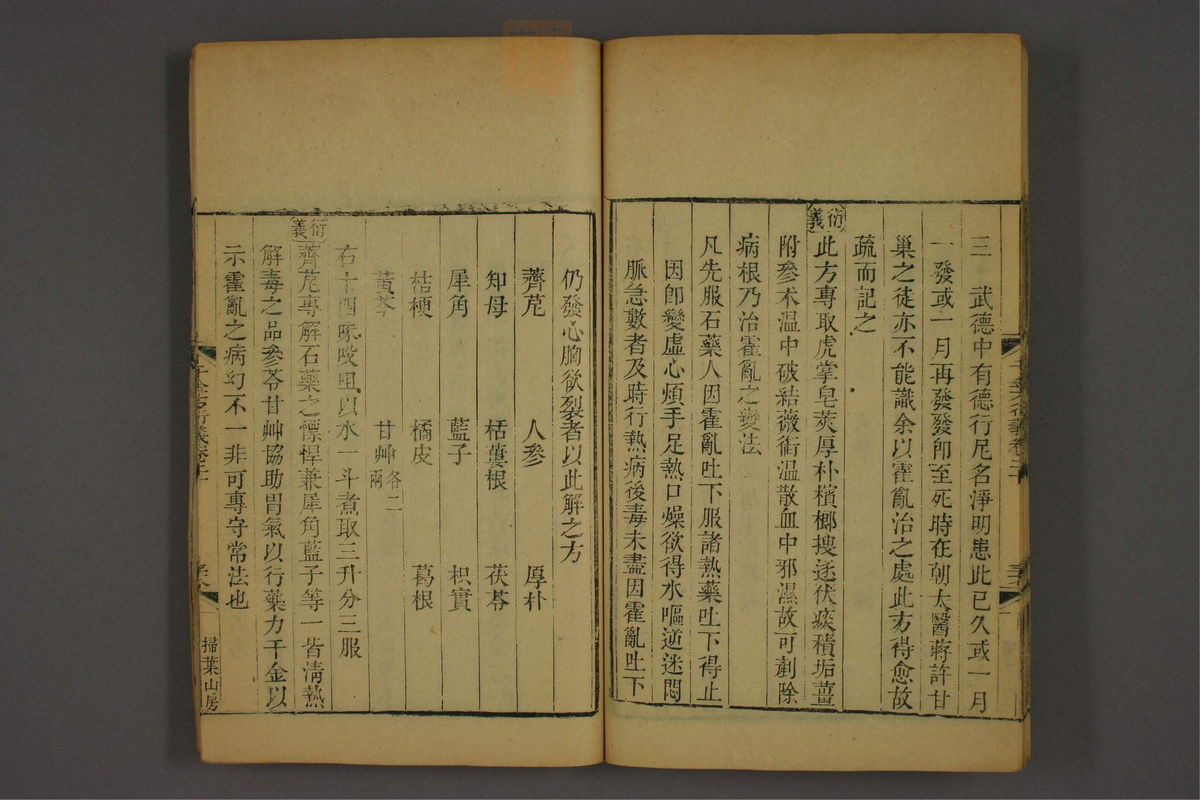 三 武德中有德行尼名淨明患此已久或一月
一發或一月再發發卽至死時在朝太醫蔣許甘
巢之徒亦不能識余以霍亂治之處此方得愈故
疏而記之
衍義
此方專取虎掌皂莢厚朴檳榔搜逐伏痰積垢薑
附參朮溫中破結薇銜溫散血中邪濕故可剷除
病根乃治霍亂之變法
凡先服石藥人因霍亂吐下服諸熱藥吐下得止
因卽變虛心煩手足熱口燥欲得水嘔逆迷悶
脈急數者及時行熱病後毒未盡因霍亂吐下
仍發心胸欲裂者以此解之方
薺苨 人參 厚朴
知母 栝蔞根 茯苓
犀角 藍子 枳實
桔梗 橘皮 葛根
黃芩 甘艸各二兩
右十四味㕮咀以水一斗煮取三升分三服
衍義
薺苨專解石藥之慓悍兼犀角藍子等一皆淸熱
解毒之品參苓甘艸協助胃氣以行藥力千金以
示霍亂之病幻不一非可專守常法也
千金方衍義卷二十
掃葉山房